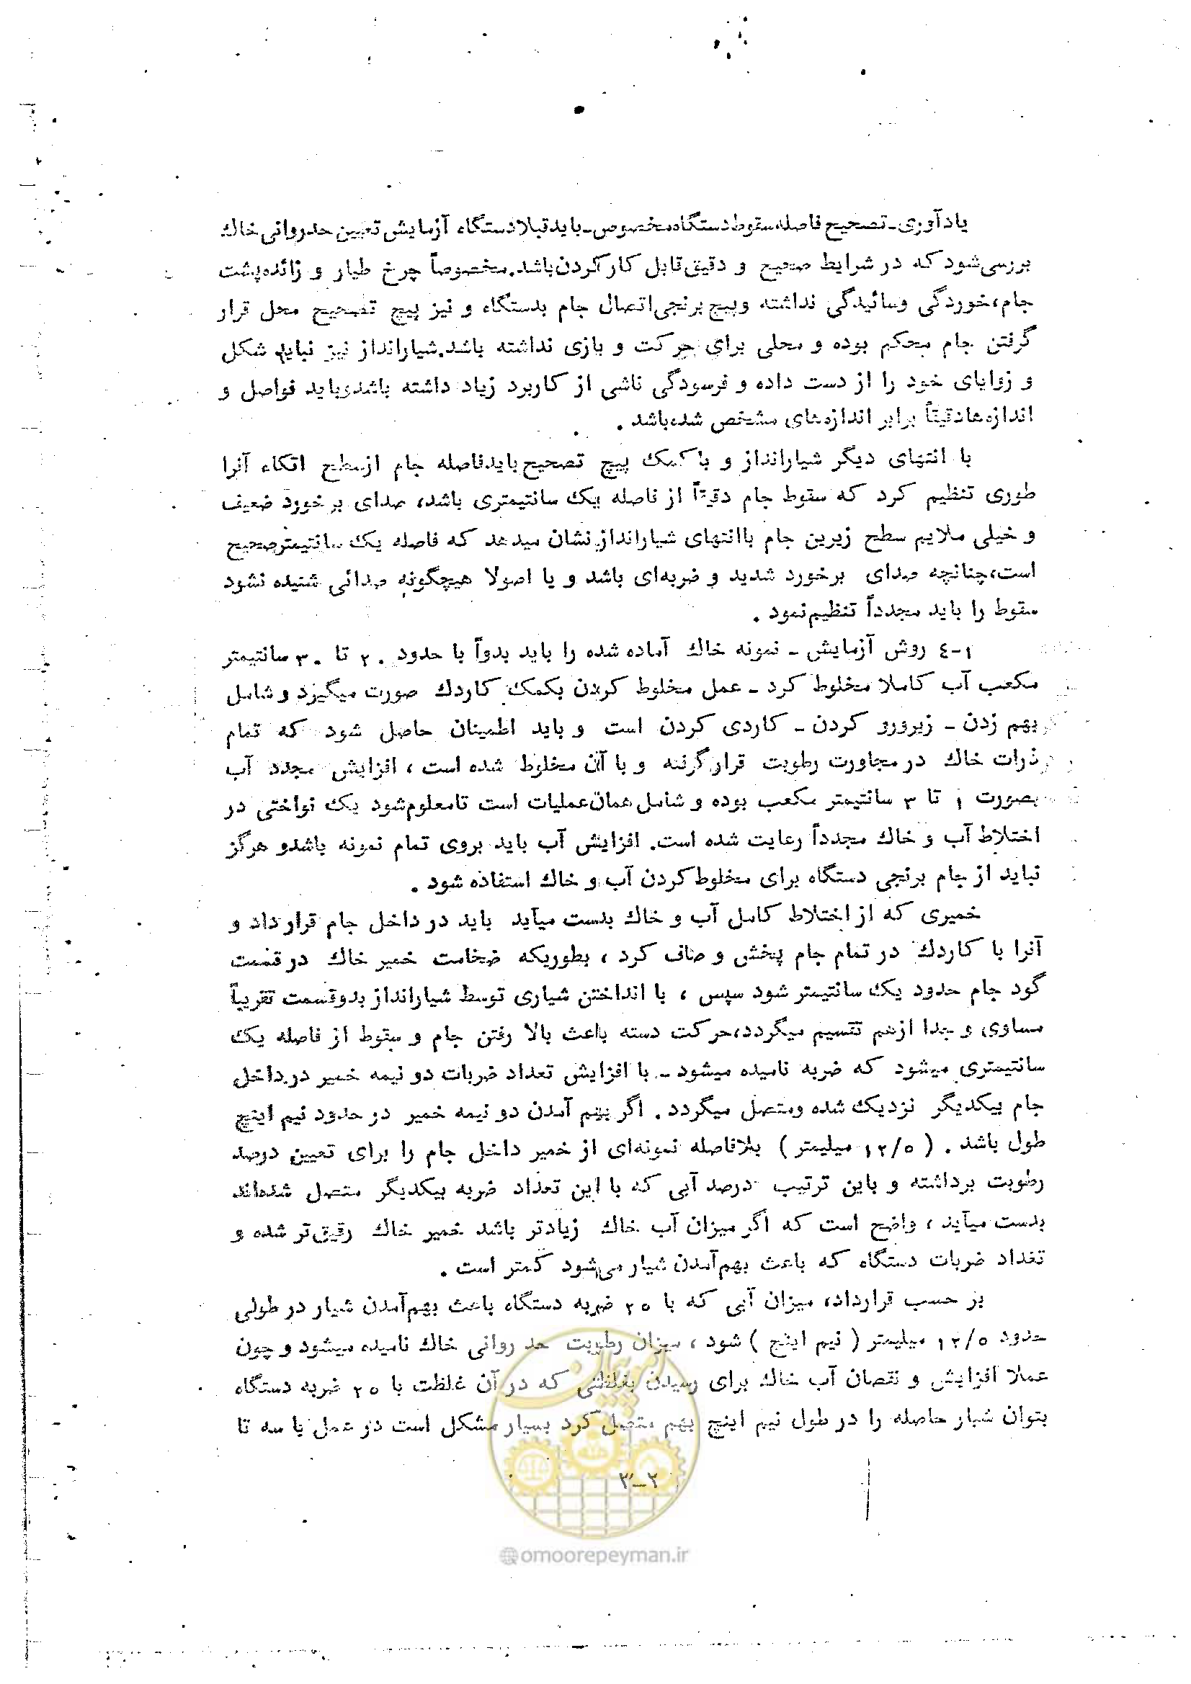 یادآوری ـ تصحیح فاصله سقوط دستگاه مخصوص ـ باید قبلا دستگاه آزمایش تعیین حد روانی خاك
بررسی شود که در شرایط صحیح و دقیق قابل کار کردن باشد. مخصوصاً چرخ طیار و زائده پشت
جام، خوردگی وسائیدگی نداشته وپیچ برنجی اتصال جام بدستگاه و نیز پیچ تصحیح محل قرار
گرفتن جام محکم بوده و محلی برای حرکت و بازی نداشته باشد. شیارانداز نیز نباید شکل
و زوایای خود را از دست داده و فرسودگی ناشی از کاربرد زیاد داشته باشد و باید فواصل و
اندازه‌ها دقیقاً برابر اندازه‌های مشخص شده باشد .
با انتهای دیگر شیارانداز و با کمك پیچ تصحیح باید فاصله جام از سطح اتکاء آنرا
طوری تنظیم کرد که سقوط جام دقیقاً از فاصله یك سانتیمتری باشد، صدای برخورد ضعیف
و خیلی ملایم سطح زیرین جام باانتهای شیارانداز نشان میدهد که فاصله یك سانتیمتر صحیح
است، چنانچه صدای برخورد شدید و ضربه‌ای باشد و یا اصولا هیچگونه صدائی شنیده نشود
سقوط را باید مجدداً تنظیم نمود .
۱-٤ روش آزمایش ـ نمونه خاك آماده شده را باید بدواً با حدود ۲۰ تا ۳۰ سانتیمتر
مکعب آب کاملا مخلوط کرد ـ عمل مخلوط کردن بکمك کاردك صورت میگیرد و شامل
بهم زدن ـ زیرورو کردن ـ کاردی کردن است و باید اطمینان حاصل شود که تمام
ذرات خاك در مجاورت رطوبت قرار گرفته و با آن مخلوط شده است ، افزایش مجدد آب
بصورت ۱ تا ۳ سانتیمتر مکعب بوده و شامل همان عملیات است تا معلوم شود یك نواختی در
اختلاط آب و خاك مجدداً رعایت شده است. افزایش آب باید بروی تمام نمونه باشد و هرگز
نباید از جام برنجی دستگاه برای مخلوط کردن آب و خاك استفاده شود .
خمیری که از اختلاط کامل آب و خاك بدست میآید باید در داخل جام قرار داد و
آنرا با کاردك در تمام جام پخش و صاف کرد ، بطوریکه ضخامت خمیر خاك در قسمت
گود جام حدود یك سانتیمتر شود سپس ، با انداختن شیاری توسط شیارانداز بدوقسمت تقریباً
مساوی و جدا ازهم تقسیم میگردد، حرکت دسته باعث بالا رفتن جام و سقوط از فاصله یك
سانتیمتری میشود که ضربه نامیده میشود ـ با افزایش تعداد ضربات دو نیمه خمیر در داخل
جام بیکدیگر نزدیك شده ومتصل میگردد . اگر بهم آمدن دو نیمه خمیر در حدود نیم اینچ
طول باشد . ( ۱۲/۵ میلیمتر ) بلافاصله نمونه‌ای از خمیر داخل جام را برای تعیین درصد
رطوبت برداشته و باین ترتیب درصد آبی که با این تعداد ضربه بیکدیگر متصل شده‌اند
بدست میآید ، واضح است که اگر میزان آب خاك زیادتر باشد خمیر خاك رقیق‌تر شده و
تعداد ضربات دستگاه که باعث بهم آمدن شیار می‌شود کمتر است .
بر حسب قرارداد، میزان آبی که با ۲۵ ضربه دستگاه باعث بهم‌آمدن شیار در طولی
حدود ۱۲/۵ میلیمتر ( نیم اینچ ) شود ، میزان رطوبت حد روانی خاك نامیده میشود و چون
عملا افزایش و نقصان آب خاك برای رسیدن بغلظتی که در آن غلظت با ۲۵ ضربه دستگاه
بتوان شیار حاصله را در طول نیم اینچ بهم متصل کرد بسیار مشکل است در عمل با سه تا
۳-۲
امور پیمان
@omoorepeyman.ir